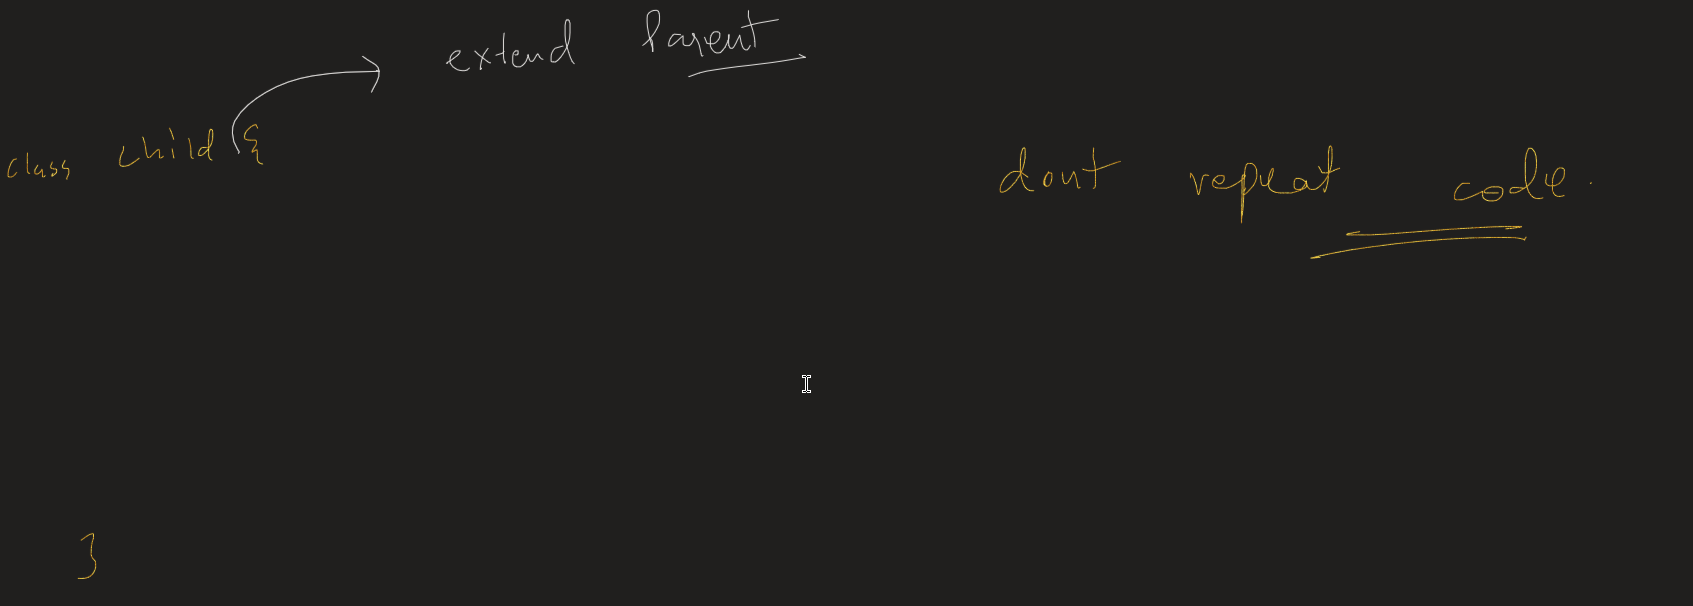 extend Parent
class child {
dont repeat code.
}